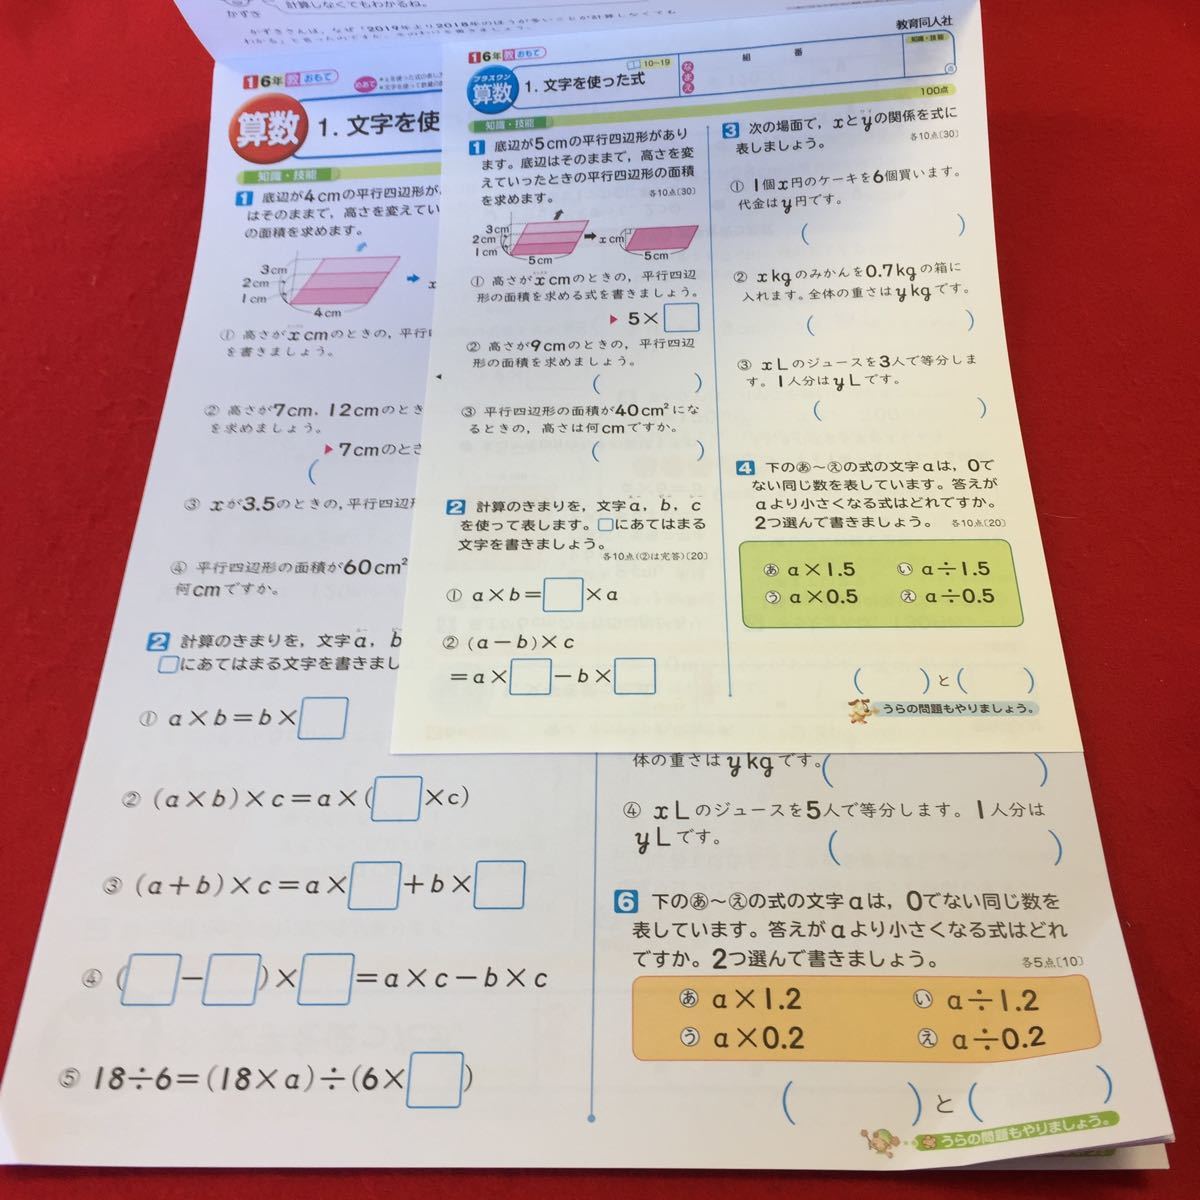 かずき
計算しなくてもわかるね。
1 6年 教 おもて
算数
1. 文字を使
知識・技能
1 底辺が4cmの平行四辺形が
はそのままで，高さを変えてい
の面積を求めます。
3cm
2cm
1cm
4cm
① 高さがx cmのときの，平行
を書きましょう。
② 高さが7cm，12cmのとき
を求めましょう。
▶ 7cmのとき
(
③ xが3.5のときの，平行四辺
④ 平行四辺形の面積が60cm²
何cmですか。
2 計算のきまりを，文字a，b
□にあてはまる文字を書きまし
① a×b＝b×□
② (a×b)×c＝a×(□×c)
③ (a＋b)×c＝a×□＋b×□
④ (□－□)×□＝a×c－b×c
⑤ 18÷6＝(18×a)÷(6×□)
体の重さはy kgです。
( )
④ xLのジュースを5人で等分します。1人分は
yLです。
( )
6 下のあ～えの式の文字aは，0でない同じ数を
表しています。答えがaより小さくなる式はどれ
ですか。2つ選んで書きましょう。 各5点〔10〕
あ a×1.2 い a÷1.2
う a×0.2 え a÷0.2
( )と( )
うらの問題もやりましょう。
教育同人社
1 6年 教 おもて
プラスワン
算数
1. 文字を使った式
10～19
なまえ
組 番
知識・技能
点
100点
知識・技能
1 底辺が5cmの平行四辺形があり
ます。底辺はそのままで，高さを変
えていったときの平行四辺形の面積
を求めます。 各10点〔30〕
3cm
2cm
1cm
5cm
x cm
5cm
① 高さがx cmのときの，平行四辺
形の面積を求める式を書きましょう。
▶ 5×□
② 高さが9cmのときの，平行四辺
形の面積を求めましょう。
( )
③ 平行四辺形の面積が40cm²にな
るときの，高さは何cmですか。
( )
2 計算のきまりを，文字a，b，c
を使って表します。□にあてはまる
文字を書きましょう。
各10点(②は完答)〔20〕
① a×b＝□×a
② (a－b)×c
＝a×□－b×□
3 次の場面で，xとyの関係を式に
表しましょう。 各10点〔30〕
① 1個x円のケーキを6個買います。
代金はy円です。
( )
② x kgのみかんを0.7kgの箱に
入れます。全体の重さはy kgです。
( )
③ xLのジュースを3人で等分しま
す。1人分はyLです。
( )
4 下のあ～えの式の文字aは，0で
ない同じ数を表しています。答えが
aより小さくなる式はどれですか。
2つ選んで書きましょう。 各10点〔20〕
あ a×1.5 い a÷1.5
う a×0.5 え a÷0.5
( )と( )
うらの問題もやりましょう。